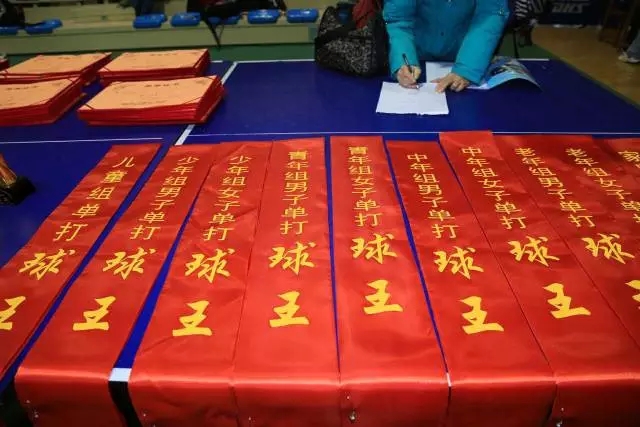 儿童组单打球王
少年组男子单打球王
少年组女子单打球王
青年组男子单打球王
青年组女子单打球王
中年组男子单打球王
中年组女子单打球王
老年组男子单打球王
老年组女子单打球王